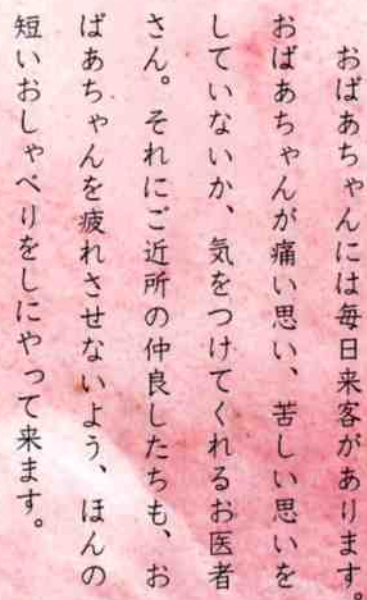 おばあちゃんには毎日来客があります。
おばあちゃんが痛い思い、苦しい思いを
していないか、気をつけてくれるお医者
さん。それにご近所の仲良したちも、お
ばあちゃんを疲れさせないよう、ほんの
短いおしゃべりをしにやって来ます。